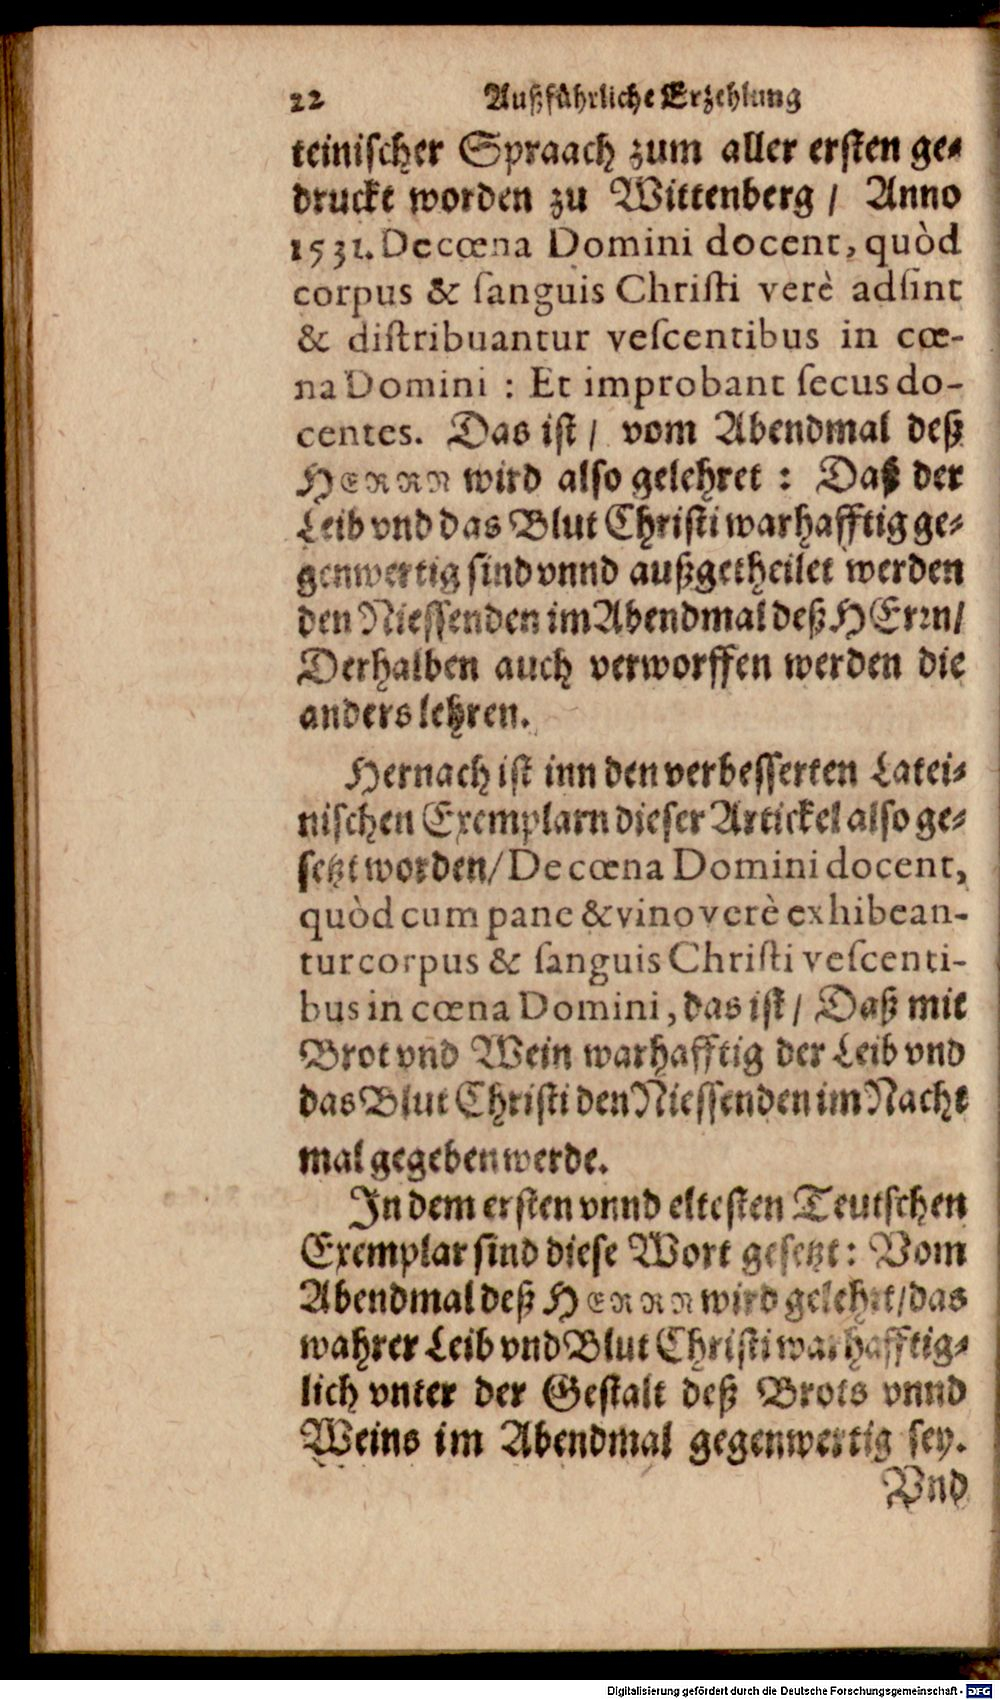 22 Außführliche Erzehlung
teinischer Spraach zum aller ersten ge⸗
druckt worden zu Wittenberg / Anno
1531. De cœna Domini docent, quòd
corpus & sanguis Christi verè adsint
& distribuantur vescentibus in cœ-
na Domini : Et improbant secus do-
centes. Das ist / vom Abendmal deß
HERRN wird also gelehret : Daß der
Leib vnd das Blut Christi warhafftig ge⸗
genwertig sind vnnd außgetheilet werden
den Niessenden im Abendmal deß HErrn /
Derhalben auch verworffen werden die
anders lehren.
Hernach ist inn den verbesserten Latei⸗
nischen Exemplarn dieser Artickel also ge⸗
setzt worden / De cœna Domini docent,
quòd cum pane & vino verè exhibean-
tur corpus & sanguis Christi vescenti-
bus in cœna Domini, das ist / Daß mit
Brot vnd Wein warhafftig der Leib vnd
das Blut Christi den Niessenden im Nacht
mal gegeben werde.
In dem ersten vnnd eltesten Teutschen
Exemplar sind diese Wort gesetzt : Vom
Abendmal deß HERRN wird gelehrt / das
wahrer Leib vnd Blut Christi warhafftig⸗
lich vnter der Gestalt deß Brots vnnd
Weins im Abendmal gegenwertig sey.
Vnd
Digitalisierung gefördert durch die Deutsche Forschungsgemeinschaft - DFG